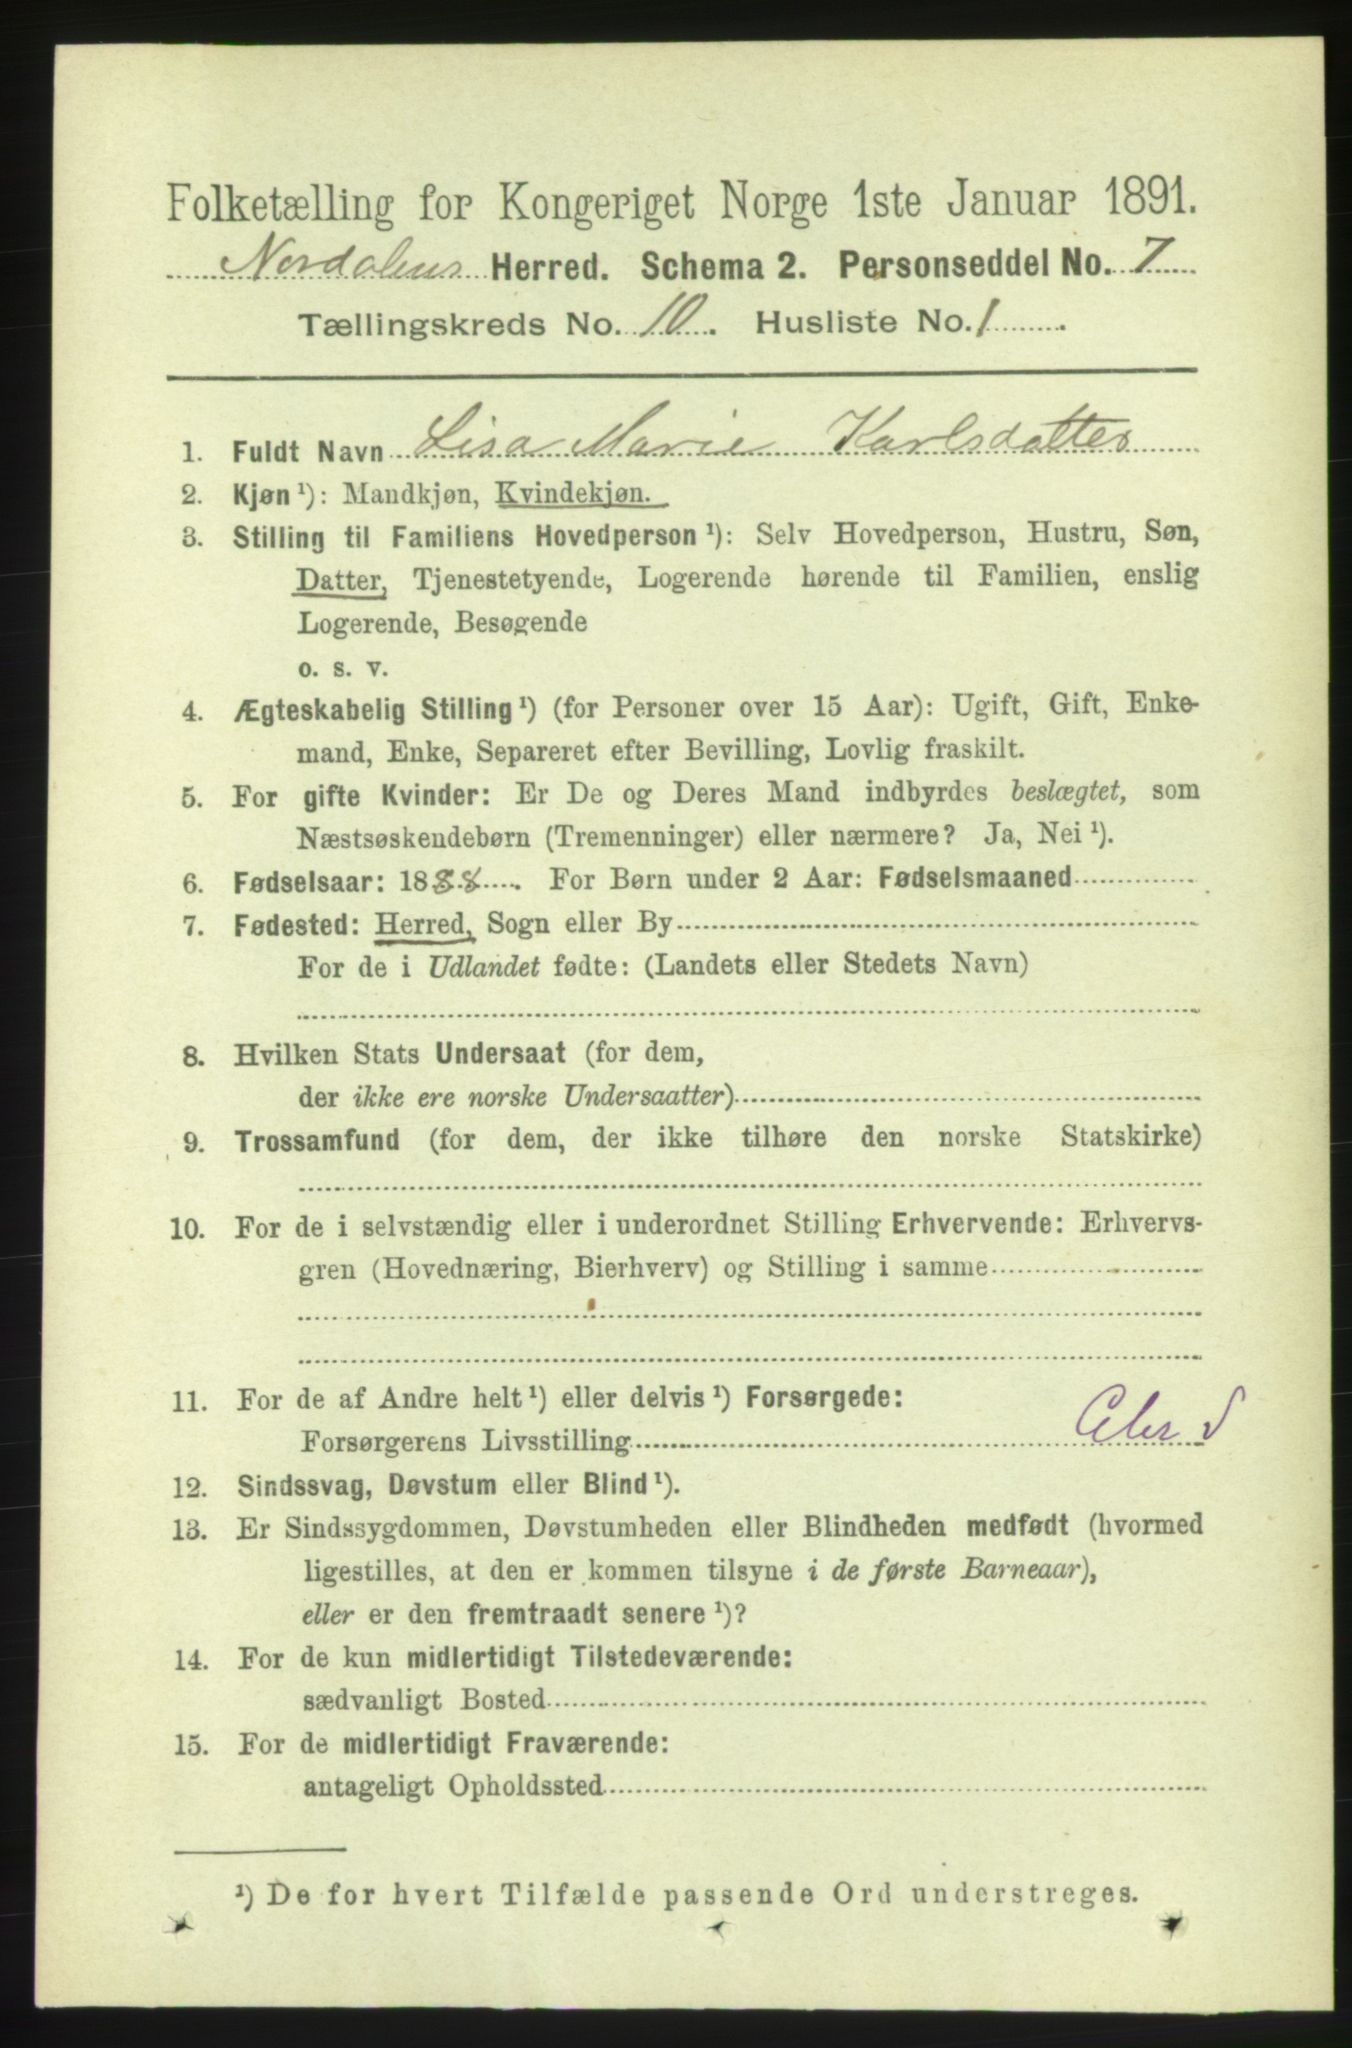 Folketælling for Kongeriget Norge 1ste Januar 1891.
Nordalens Herred. Schema 2. Personseddel No. 7
Tællingskreds No. 10. Husliste No. 1.
1. Fuldt Navn Lisa Marie Karlsdatter
2. Kjøn ¹): Mandkjøn, Kvindekjøn.
3. Stilling til Familiens Hovedperson ¹): Selv Hovedperson, Hustru, Søn,
Datter, Tjenestetyende, Logerende hørende til Familien, enslig
Logerende, Besøgende
o. s. v.
4. Ægteskabelig Stilling ¹) (for Personer over 15 Aar): Ugift, Gift, Enke-
mand, Enke, Separeret efter Bevilling, Lovlig fraskilt.
5. For gifte Kvinder: Er De og Deres Mand indbyrdes beslægtet, som
Næstsøskendebørn (Tremenninger) eller nærmere? Ja, Nei ¹).
6. Fødselsaar: 1888. For Børn under 2 Aar: Fødselsmaaned
7. Fødested: Herred, Sogn eller By
For de i Udlandet fødte: (Landets eller Stedets Navn)
8. Hvilken Stats Undersaat (for dem,
der ikke ere norske Undersaatter)
9. Trossamfund (for dem, der ikke tilhøre den norske Statskirke)
10. For de i selvstændig eller i underordnet Stilling Erhvervende: Erhvervs-
gren (Hovednæring, Bierhverv) og Stilling i samme
11. For de af Andre helt ¹) eller delvis ¹) Forsørgede:
Forsørgerens Livsstilling
12. Sindssvag, Døvstum eller Blind ¹).
13. Er Sindssygdommen, Døvstumheden eller Blindheden medfødt (hvormed
ligestilles, at den er kommen tilsyne i de første Barneaar),
eller er den fremtraadt senere ¹)?
14. For de kun midlertidigt Tilstedeværende:
sædvanligt Bosted
15. For de midlertidigt Fraværende:
antageligt Opholdssted
¹) De for hvert Tilfælde passende Ord understreges.